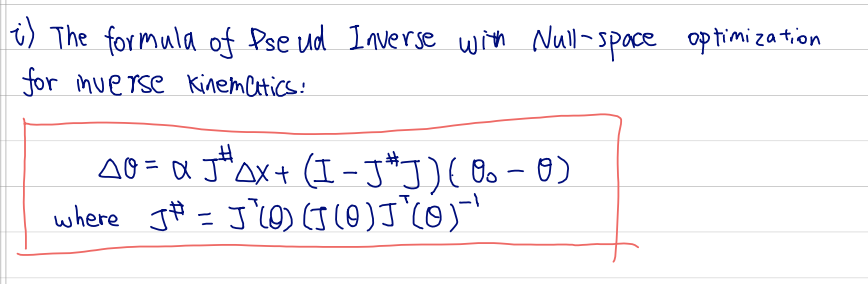 i) The formula of Pseud Inverse with Null-space optimization
for inverse kinematics:
Δθ = α J^# Δx + (I - J^# J)(θ₀ - θ)
where J^# = J^T(θ)(J(θ)J^T(θ)^-1